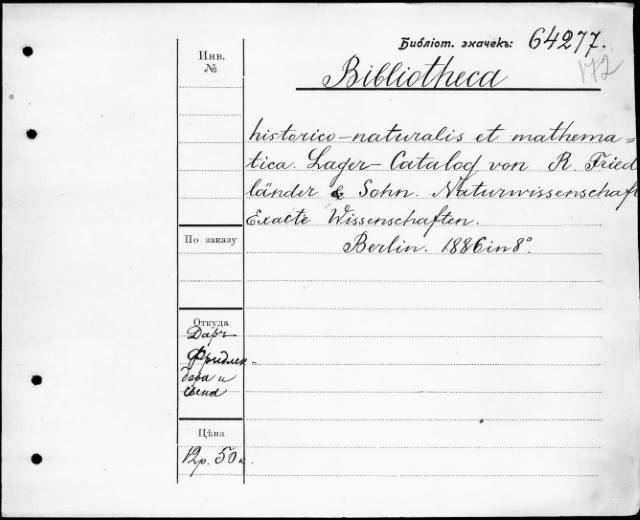 Библіот. значекъ: 64277.
172
Инв.
№
Bibliotheca
historico-naturalis et mathema=
tica. Lager-Catalog von R. Fried
länder & Sohn. Naturwissenschaft
Exacte Wissenschaften.
По заказу
Berlin. 1886 in 8°.
Откуда
Даръ
Фридлен-
дера и
сына
Цѣна
12р. 50к.